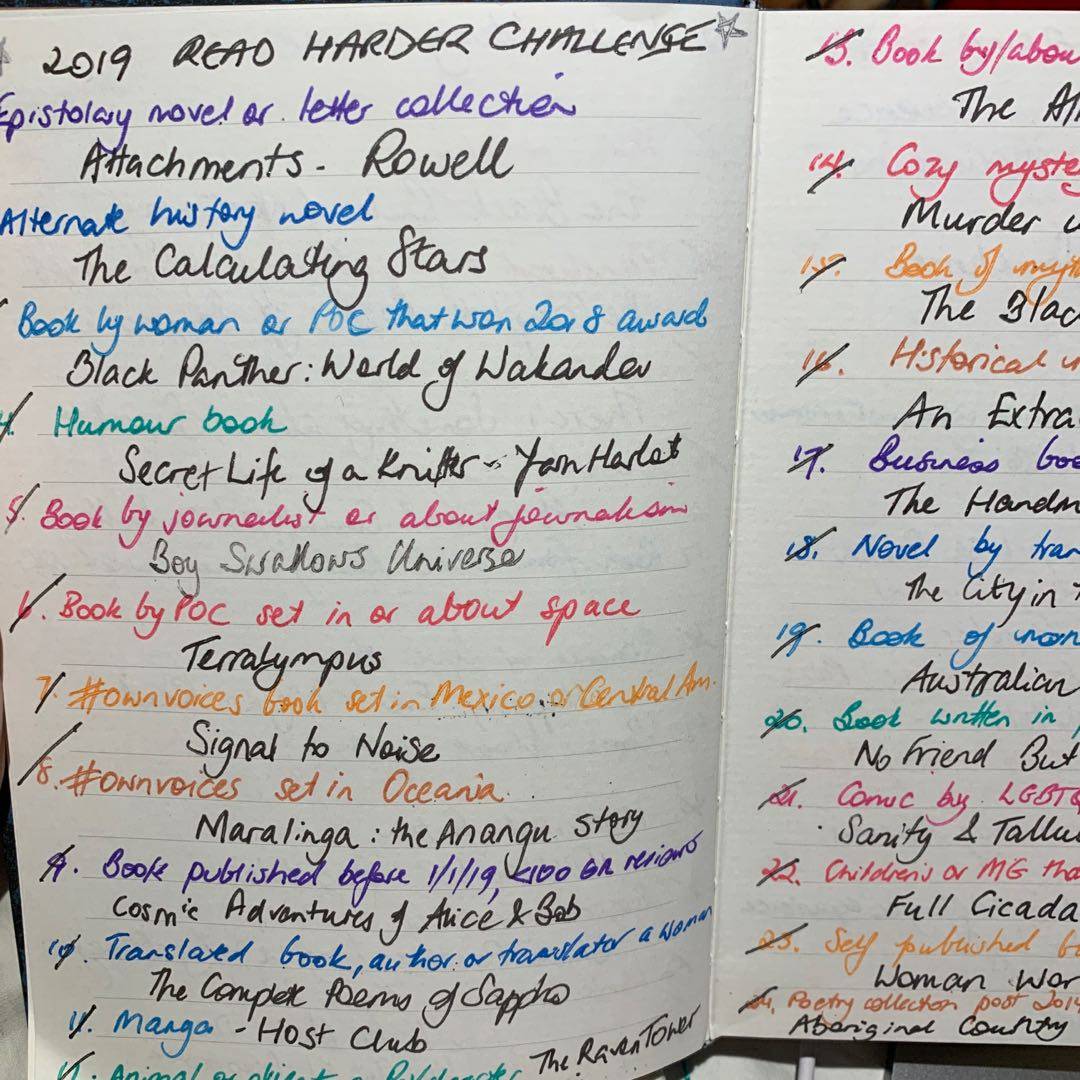 2019 READ HARDER CHALLENGE
Epistolary novel or letter collection
Attachments - Rowell
Alternate history novel
The Calculating Stars
Book by woman or POC that won 2018 award
Black Panther: World of Wakanda
4. Humour book
Secret Life of a Knitter - Yarn Harlot
5. Book by journalist or about journalism
Boy Swallows Universe
6. Book by POC set in or about space
Terralympus
7. #ownvoices book set in Mexico or Central Am.
Signal to Noise
8. #ownvoices set in Oceania
Maralinga: the Anangu story
9. Book published before 1/1/19, <100 GR reviews
Cosmic Adventures of Alice & Bob
10. Translated book, author or translator a woman
The Complete Poems of Sappho
11. Manga - Host Club
Animal or object a
The Raven Tower
13. Book by/abou
The
14. Cozy myste
Murder
15. Book of
The Blac
16. Historical
An Extra
17. Business boo
The Handm
18. Novel by tran
The City in
19. Book of
Australian
20. Book written in
No Friend But
21. Comic by LGBTQ
Sanity & Tallu
22. Children's or MG tha
Full Cicada
23. Self published
Woman Wor
24. Poetry collection post 2014
Aboriginal Country